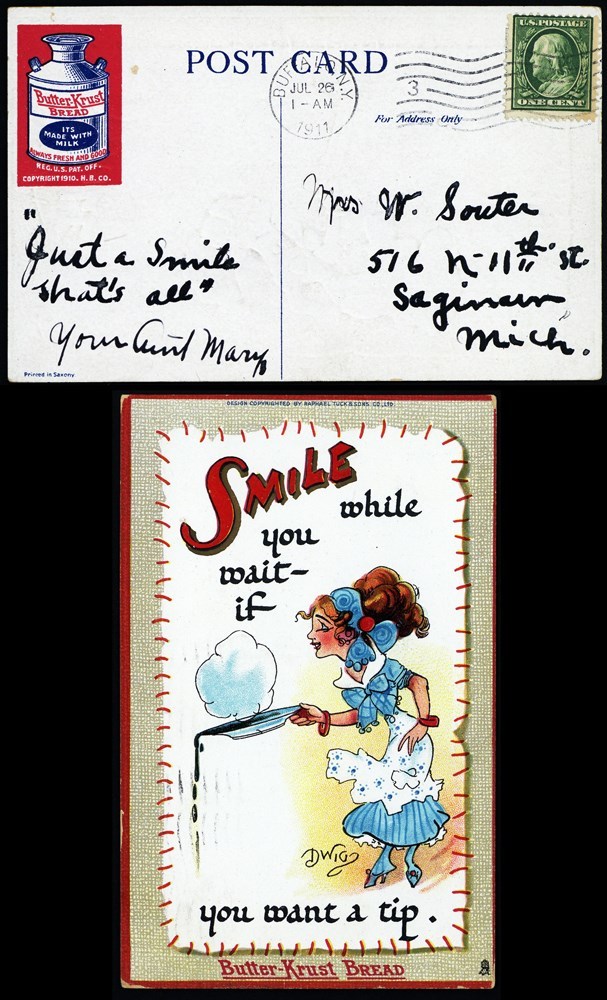 POST CARD
Butter-Krust
BREAD
ITS
MADE WITH
MILK
ALWAYS FRESH AND GOOD
REG. U.S. PAT. OFF.
COPYRIGHT 1910. H. B. CO.
BUFFALO N.Y.
JUL 26
1-AM
1911
3
U.S. POSTAGE
ONE CENT
For Address Only
"Just a Smile
that's all"
Your Aunt Mary
Mrs W. Souter
516 N-11th St.
Saginaw
Mich.
Printed in Saxony
DESIGN COPYRIGHTED BY RAPHAEL TUCK & SONS. CO., LTD.
SMILE while
you
wait-
if-
DWIG
you want a tip.
Butter-Krust BREAD